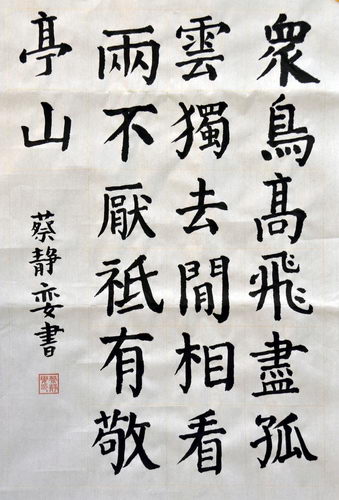 眾鳥髙飛盡孤
雲獨去閒相看
兩不厭祗有敬
亭山
蔡靜娈書